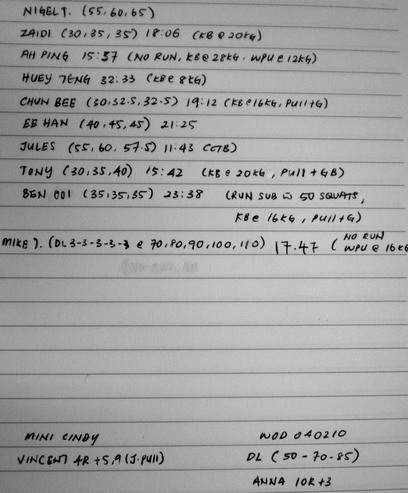 NIGEL T. (55,60,65)
ZAIDI (30,35,35) 18:06 (KB @ 20KG)
AH PING 15:57 (NO RUN, KB @ 28KG. WPU @ 12KG)
HUEY TENG 32:33 (KB @ 8KG)
CHUN BEE (30,32.5,32.5) 19:12 (KB @ 16KG, PULL+G)
EE HAN (40,45,45) 21:25
JULES (55,60,57.5) 11:43 (GTB)
TONY (30,35,40) 15:42 (KB @ 20KG, PULL+GB)
BEN OOI (35,35,35) 23:38 (RUN SUB W 50 SQUATS,
KB @ 16KG, PULL+G)
MIKE J. (DL 3-3-3-3-3 @ 70,80,90,100,110) 17.47 (NO RUN
WPU @ 16KG
MINI CINDY
VINCENT 4R+5,9 (J.PULL)
WOD 040210
DL (50-70-85)
ANNA 10R+3